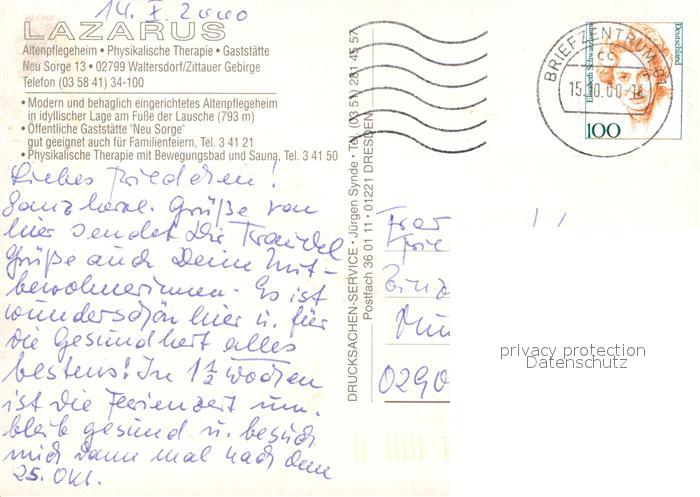 14. X. 2000
LAZARUS
Altenpflegeheim • Physikalische Therapie • Gaststätte
Neu Sorge 13 • 02799 Waltersdorf/Zittauer Gebirge
Telefon (03 58 41) 34-100
• Modern und behaglich eingerichtetes Altenpflegeheim
in idyllischer Lage am Fuße der Lausche (793 m)
• Öffentliche Gaststätte "Neu Sorge"
gut geeignet auch für Familienfeiern, Tel. 3 41 21
• Physikalische Therapie mit Bewegungsbad und Sauna, Tel. 3 41 50
Liebes Friedchen!
Ganz herzl. Grüße von
hier sendet Dir Traudel
Grüße auch Deine Mit-
bewohnerinnen. Es ist
wunderschön hier u. für
die Gesundheit alles
bestens! In 1 1/2 Wochen
ist die Ferienzeit um.
bleib gesund u. besuch
mich dann mal nach dem
25. Okt.
DRUCKSACHEN-SERVICE • Jürgen Synde • Tel. (03 51) 281 45 57
Postfach 36 01 11 • 01221 DRESDEN
BRIEFZENTRUM 01
cc
15.10.00-18
Deutschland
Elisabeth Schwarzhaupt
100
Frau
Frie
0290
privacy protection
Datenschutz